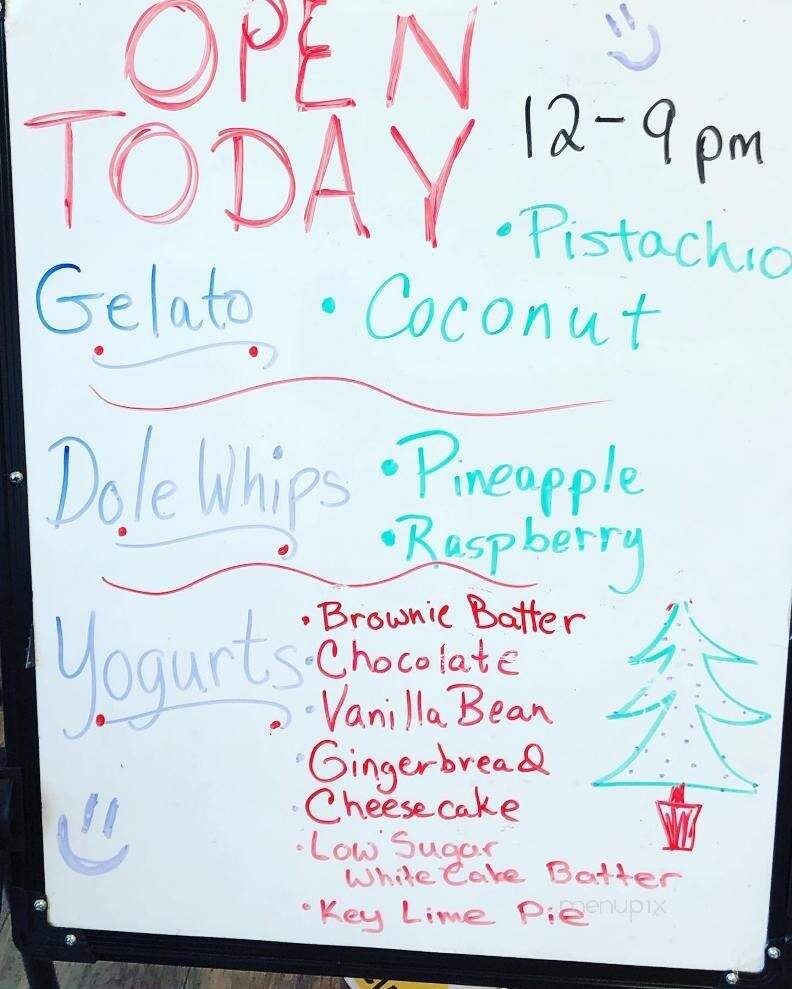 OPEN
TODAY
12-9pm
• Pistachio
Gelato • Coconut
Dole Whips • Pineapple
• Raspberry
Yogurts • Brownie Batter
• Chocolate
• Vanilla Bean
• Gingerbread
• Cheesecake
• Low Sugar
White Cake Batter
• Key Lime Pie
menupix